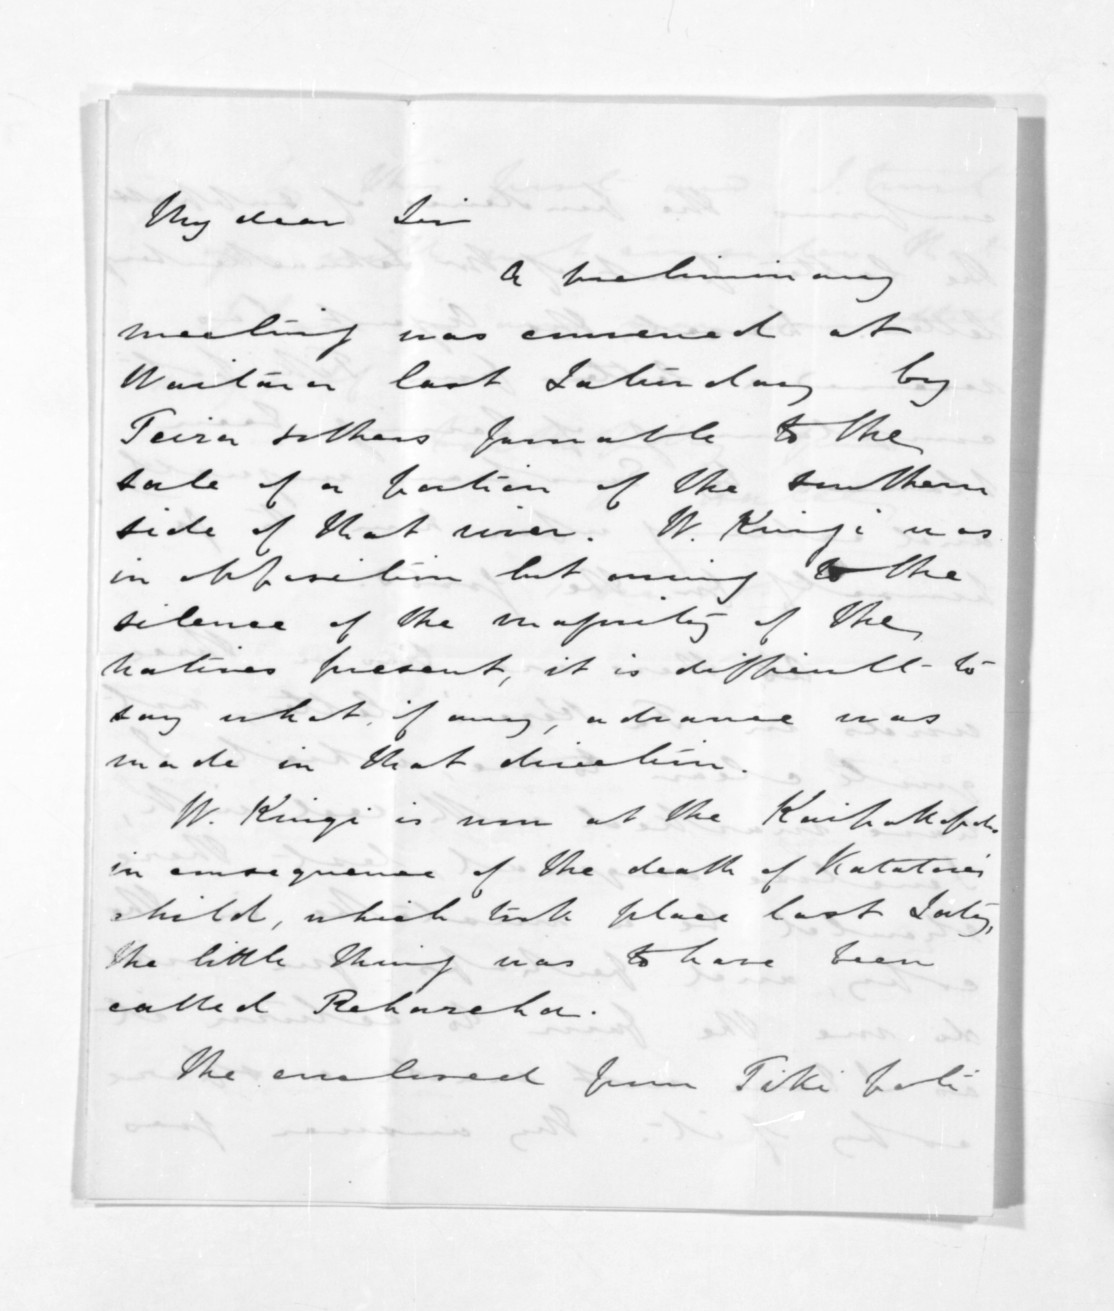 My dear Sir
A preliminary
meeting was convened at
Waitara last Saturday by
Teira & others favorable to the
sale of a portion of the southern
side of that river. W. Kingi was
in opposition but owing to the
silence of the majority of the
natives present, it is difficult to
say what, if any, advance was
made in that direction.
W. Kingi is now at the
in consequence of the death of Katatore's
child, which took place last Saty,
the little thing was to have been
called
The enclosed from Tiki